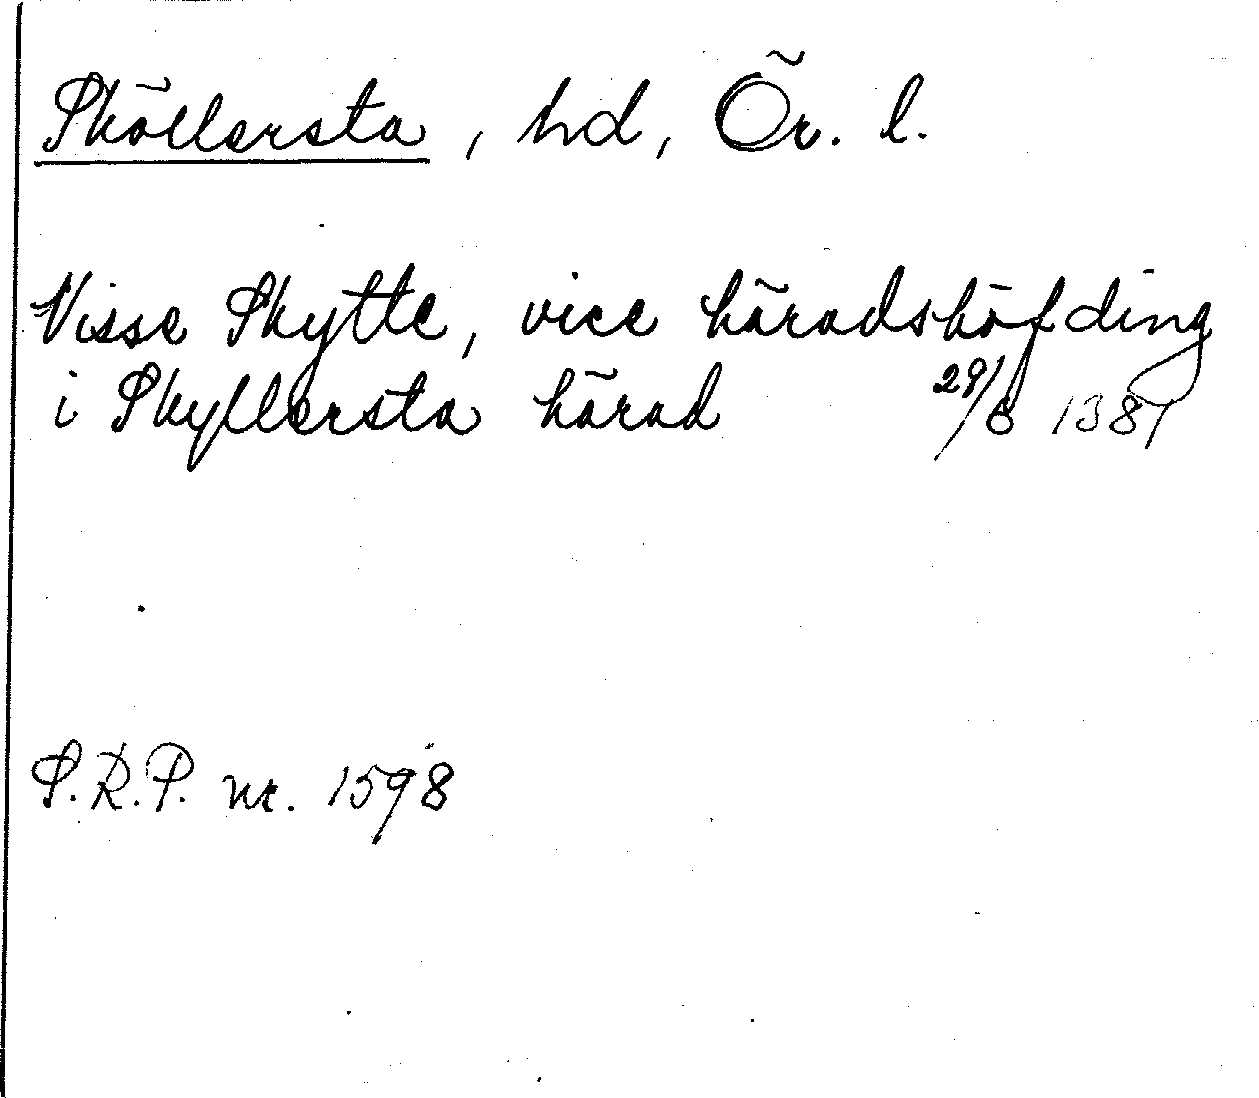 Sköllersta, hd, Ör. l.
Nisse Skytte, vice häradshöfding
i Skyllersta härad 29/6 1381
S.R.P. nr. 1598